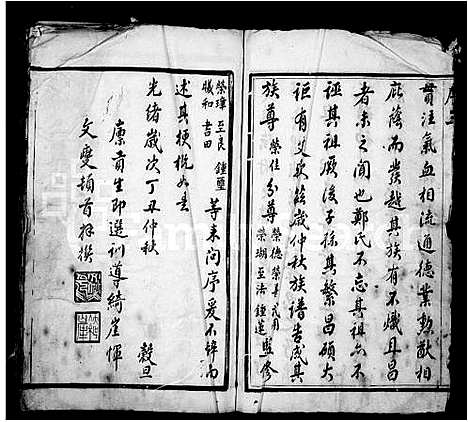 貫注氣血相流通德業勲猷相
庇蔭而發越其族有不熾且昌
者未之聞也鄭氏不忘其祖亦不
誣其祖厥後子孫其繁昌碩大
詎有艾歟餘歲仲秋族譜告成其
族尊 榮佳 分尊 榮德 榮華 式周 榮瑚 至法 鍾達 監修
榮璋 至良 鍾璽 曦和 書田 等來問序爰不辭而
述其梗概如是
光緒歲次丁丑仲秋 穀旦
廩貢生即選訓導綺崖惲
文變頓首拜撰